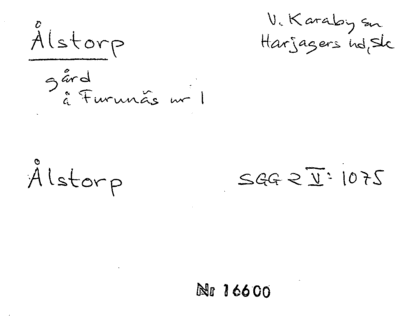 Ålstorp
V. Karaby sn
Harjagers hd, Sk
gård
å Furunäs nr 1
Ålstorp
SGG 2 V: 1075
Nr 16600